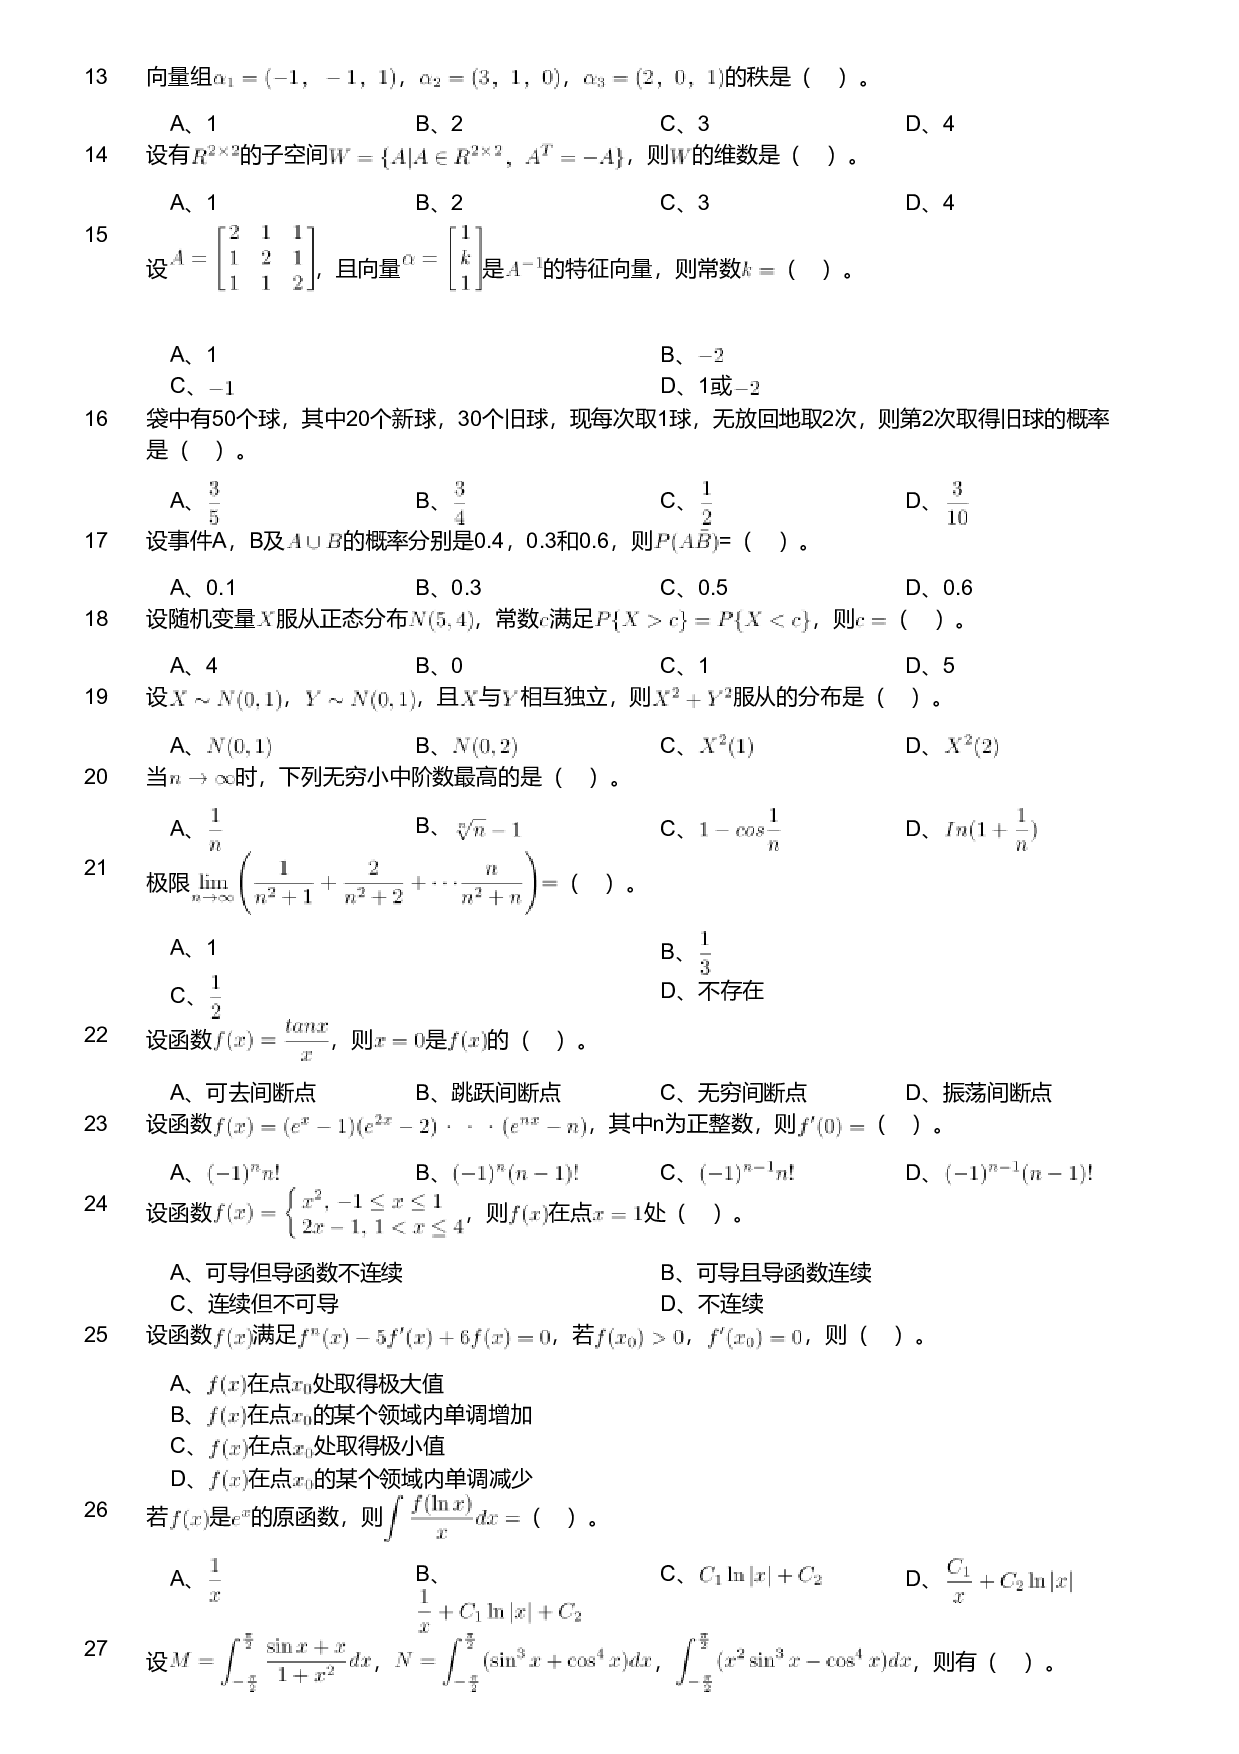 13 向量组α₁ = (−1, −1, 1), α₂ = (3, 1, 0), α₃ = (2, 0, 1)的秩是（ ）。
A、1 B、2 C、3 D、4
14 设有R^{2×2}的子空间W = {A|A ∈ R^{2×2}, A^T = −A}，则W的维数是（ ）。
A、1 B、2 C、3 D、4
15 设A = [2 1 1; 1 2 1; 1 1 2]，且向量α = [1; k; 1]是A^{−1}的特征向量，则常数k =（ ）。
A、1 B、−2
C、−1 D、1或−2
16 袋中有50个球，其中20个新球，30个旧球，现每次取1球，无放回地取2次，则第2次取得旧球的概率
是（ ）。
A、3/5 B、3/4 C、1/2 D、3/10
17 设事件A，B及A ∪ B的概率分别是0.4，0.3和0.6，则P(AB̄)=（ ）。
A、0.1 B、0.3 C、0.5 D、0.6
18 设随机变量X服从正态分布N(5, 4)，常数c满足P{X > c} = P{X < c}，则c =（ ）。
A、4 B、0 C、1 D、5
19 设X ~ N(0, 1)，Y ~ N(0, 1)，且X与Y相互独立，则X² + Y²服从的分布是（ ）。
A、N(0, 1) B、N(0, 2) C、X²(1) D、X²(2)
20 当n → ∞时，下列无穷小中阶数最高的是（ ）。
A、1/n B、ⁿ√n − 1 C、1 − cos 1/n D、In(1 + 1/n)
21 极限lim_{n→∞}(1/(n² + 1) + 2/(n² + 2) + ··· n/(n² + n)) =（ ）。
A、1 B、1/3
C、1/2 D、不存在
22 设函数f(x) = tanx/x，则x = 0是f(x)的（ ）。
A、可去间断点 B、跳跃间断点 C、无穷间断点 D、振荡间断点
23 设函数f(x) = (e^x − 1)(e^{2x} − 2) · · · (e^{nx} − n)，其中n为正整数，则f′(0) =（ ）。
A、(−1)^n n! B、(−1)^n (n − 1)! C、(−1)^{n−1} n! D、(−1)^{n−1} (n − 1)!
24 设函数f(x) = { x², −1 ≤ x ≤ 1; 2x − 1, 1 < x ≤ 4，则f(x)在点x = 1处（ ）。
A、可导但导函数不连续 B、可导且导函数连续
C、连续但不可导 D、不连续
25 设函数f(x)满足f^n(x) − 5f′(x) + 6f(x) = 0，若f(x₀) > 0，f′(x₀) = 0，则（ ）。
A、f(x)在点x₀处取得极大值
B、f(x)在点x₀的某个领域内单调增加
C、f(x)在点x₀处取得极小值
D、f(x)在点x₀的某个领域内单调减少
26 若f(x)是e^x的原函数，则∫ f(ln x)/x dx =（ ）。
A、1/x B、1/x + C₁ ln |x| + C₂ C、C₁ ln |x| + C₂ D、C₁/x + C₂ ln |x|
27 设M = ∫_{−π/2}^{π/2} (sin x + x)/(1 + x²) dx，N = ∫_{−π/2}^{π/2} (sin³ x + cos⁴ x)dx，∫_{−π/2}^{π/2} (x² sin³ x − cos⁴ x)dx，则有（ ）。